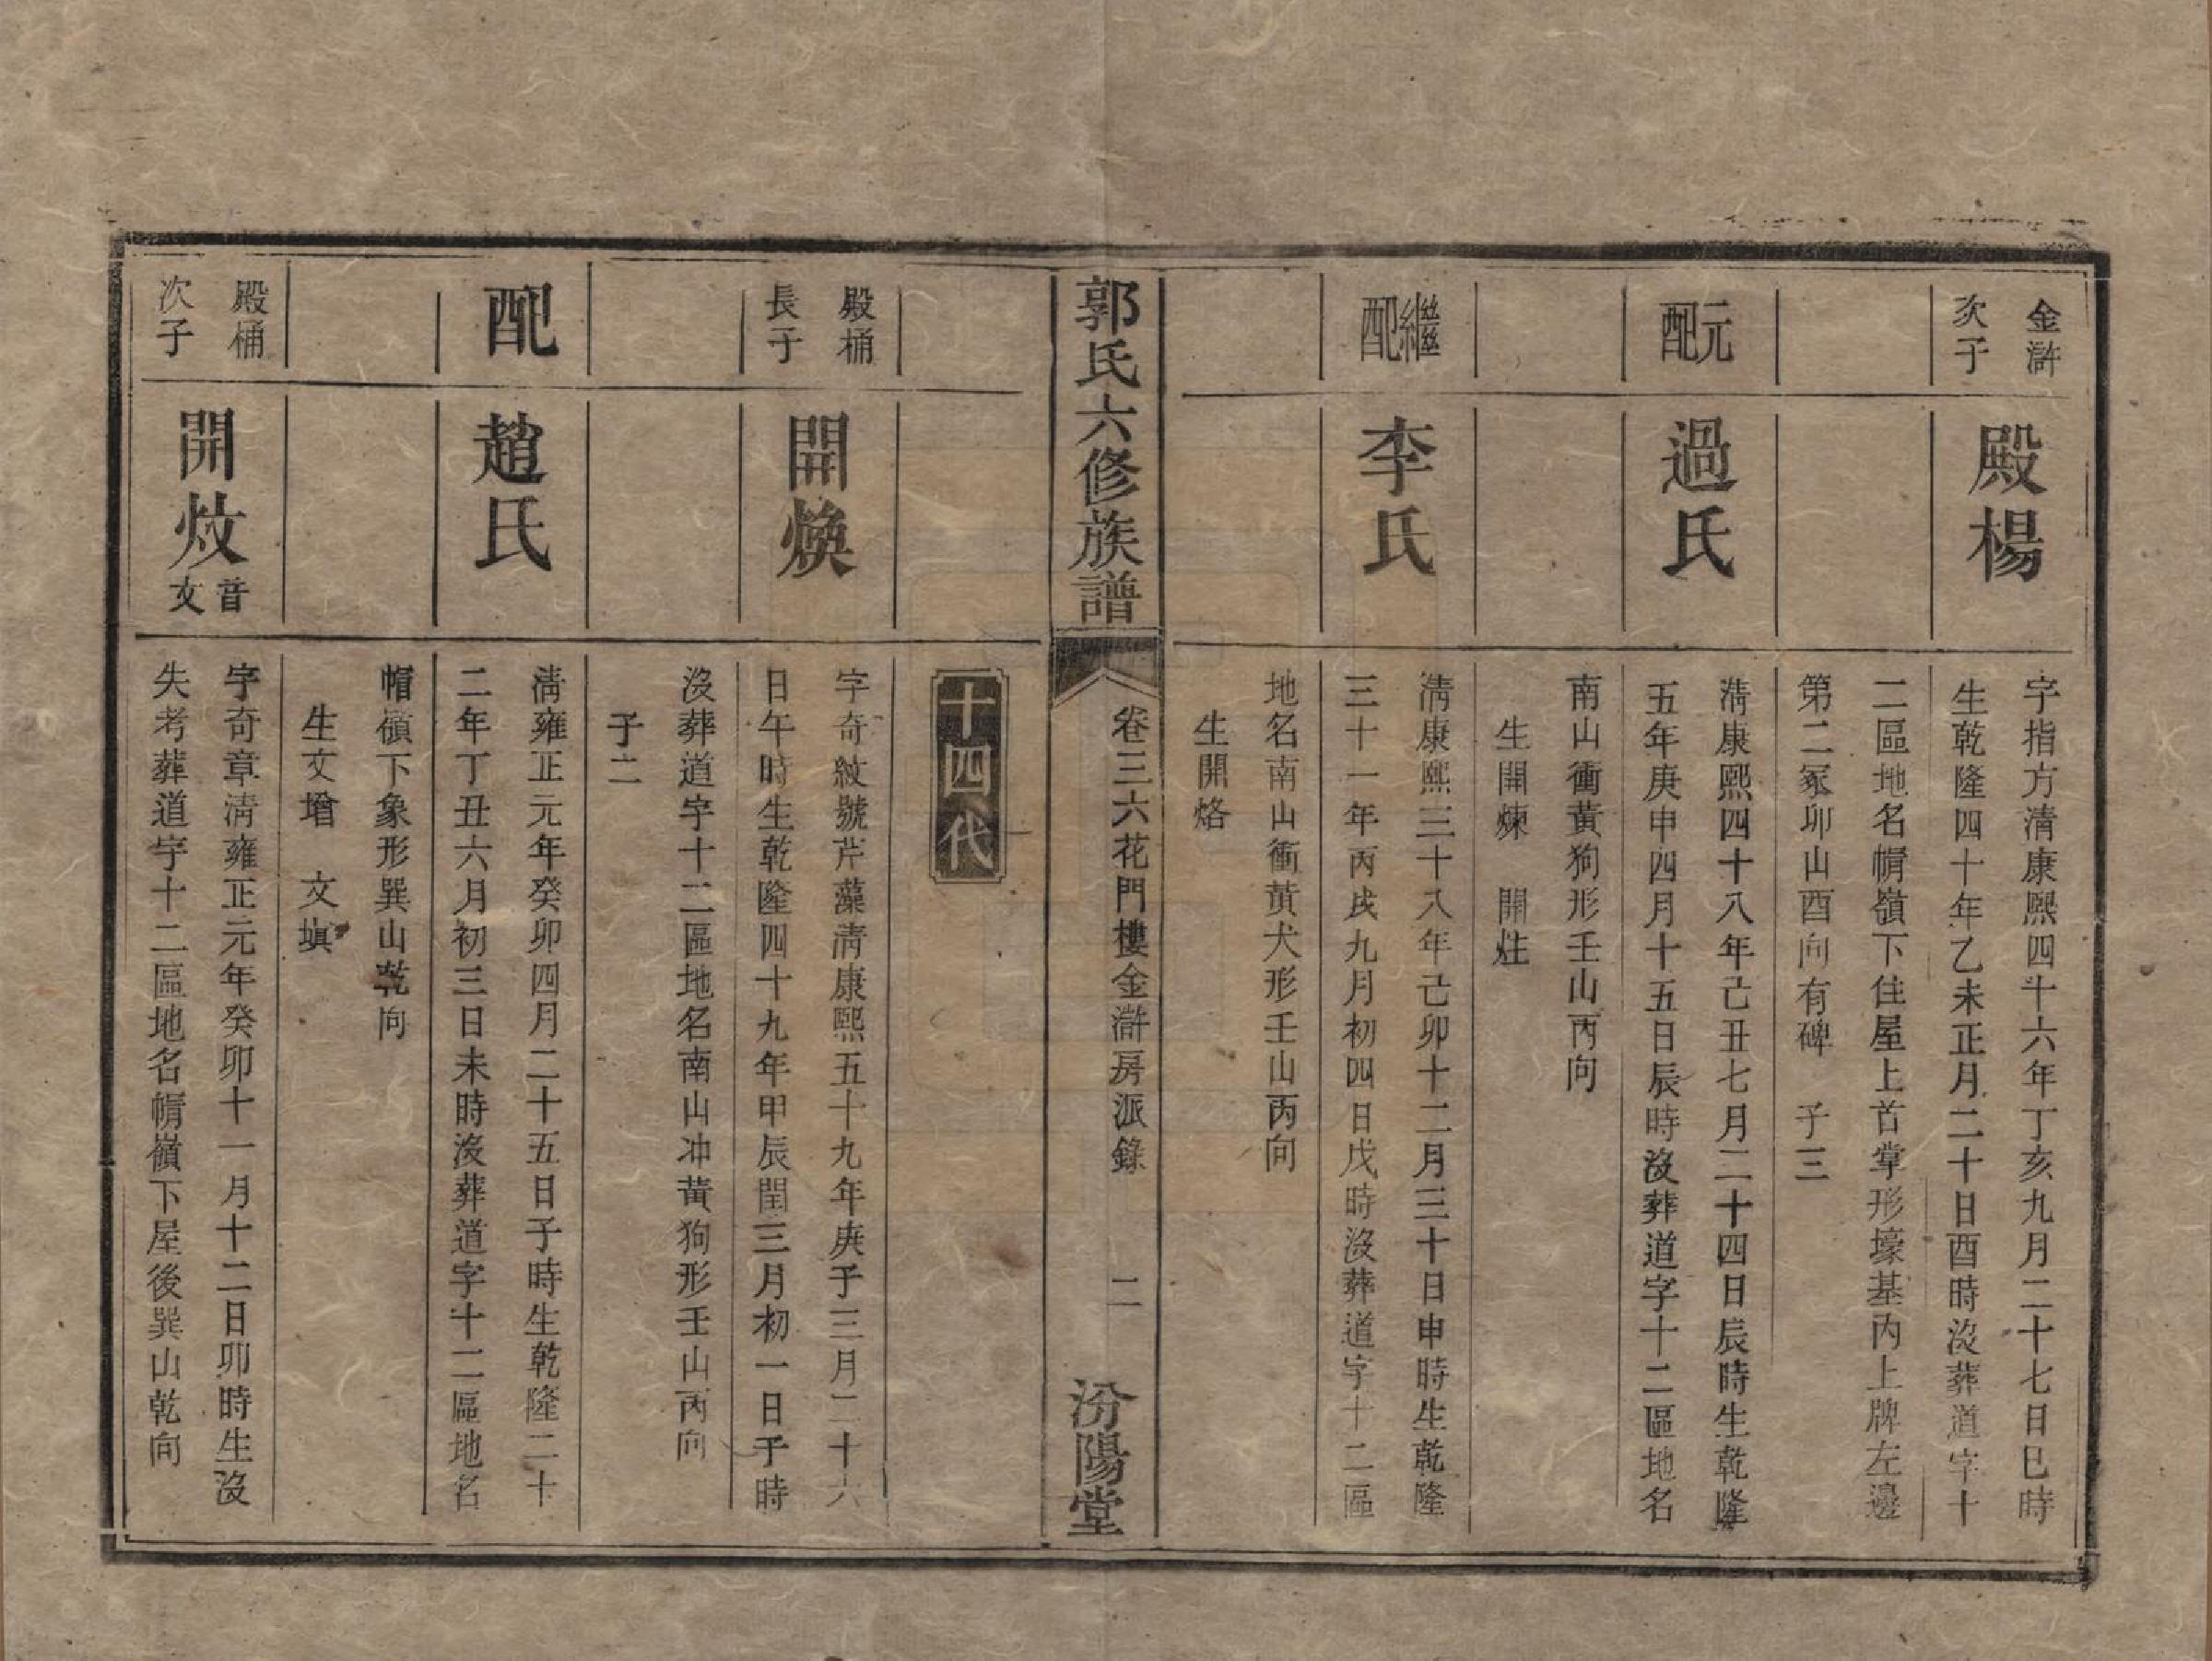 金滸
次子
殿楊
字指方清康熙四十六年丁亥九月二十七日巳時
生乾隆四十年乙未正月二十日酉時沒葬道字十
二區地名帽嶺下住屋上首掌形壕基內上牌左邊
第二冢卯山酉向有碑　子三
元配
過氏
清康熙四十八年己丑七月二十四日辰時生乾隆
五年庚申四月十五日辰時沒葬道字十二區地名
南山衝黃狗形壬山丙向
生開煉　開炷
繼配
李氏
清康熙三十八年己卯十二月三十日申時生乾隆
三十一年丙戌九月初四日戌時沒葬道字十二區
地名南山衝黃犬形壬山丙向
生開烙
郭氏六修族譜
卷三六花門樓金滸房派錄
二
汾陽堂
十四代
殿桶
長子
開煥
字奇紋號芹藻清康熙五十九年庚子三月二十六
日午時生乾隆四十九年甲辰閏三月初一日子時
沒葬道字十二區地名南山冲黃狗形壬山丙向
子二
配
趙氏
清雍正元年癸卯四月二十五日子時生乾隆二十
二年丁丑六月初三日未時沒葬道字十二區地名
帽嶺下象形巽山乾向
生文增　文塡
殿桶
次子
開炆
音文
字奇章清雍正元年癸卯十一月十二日卯時生沒
失考葬道字十二區地名帽嶺下屋後巽山乾向